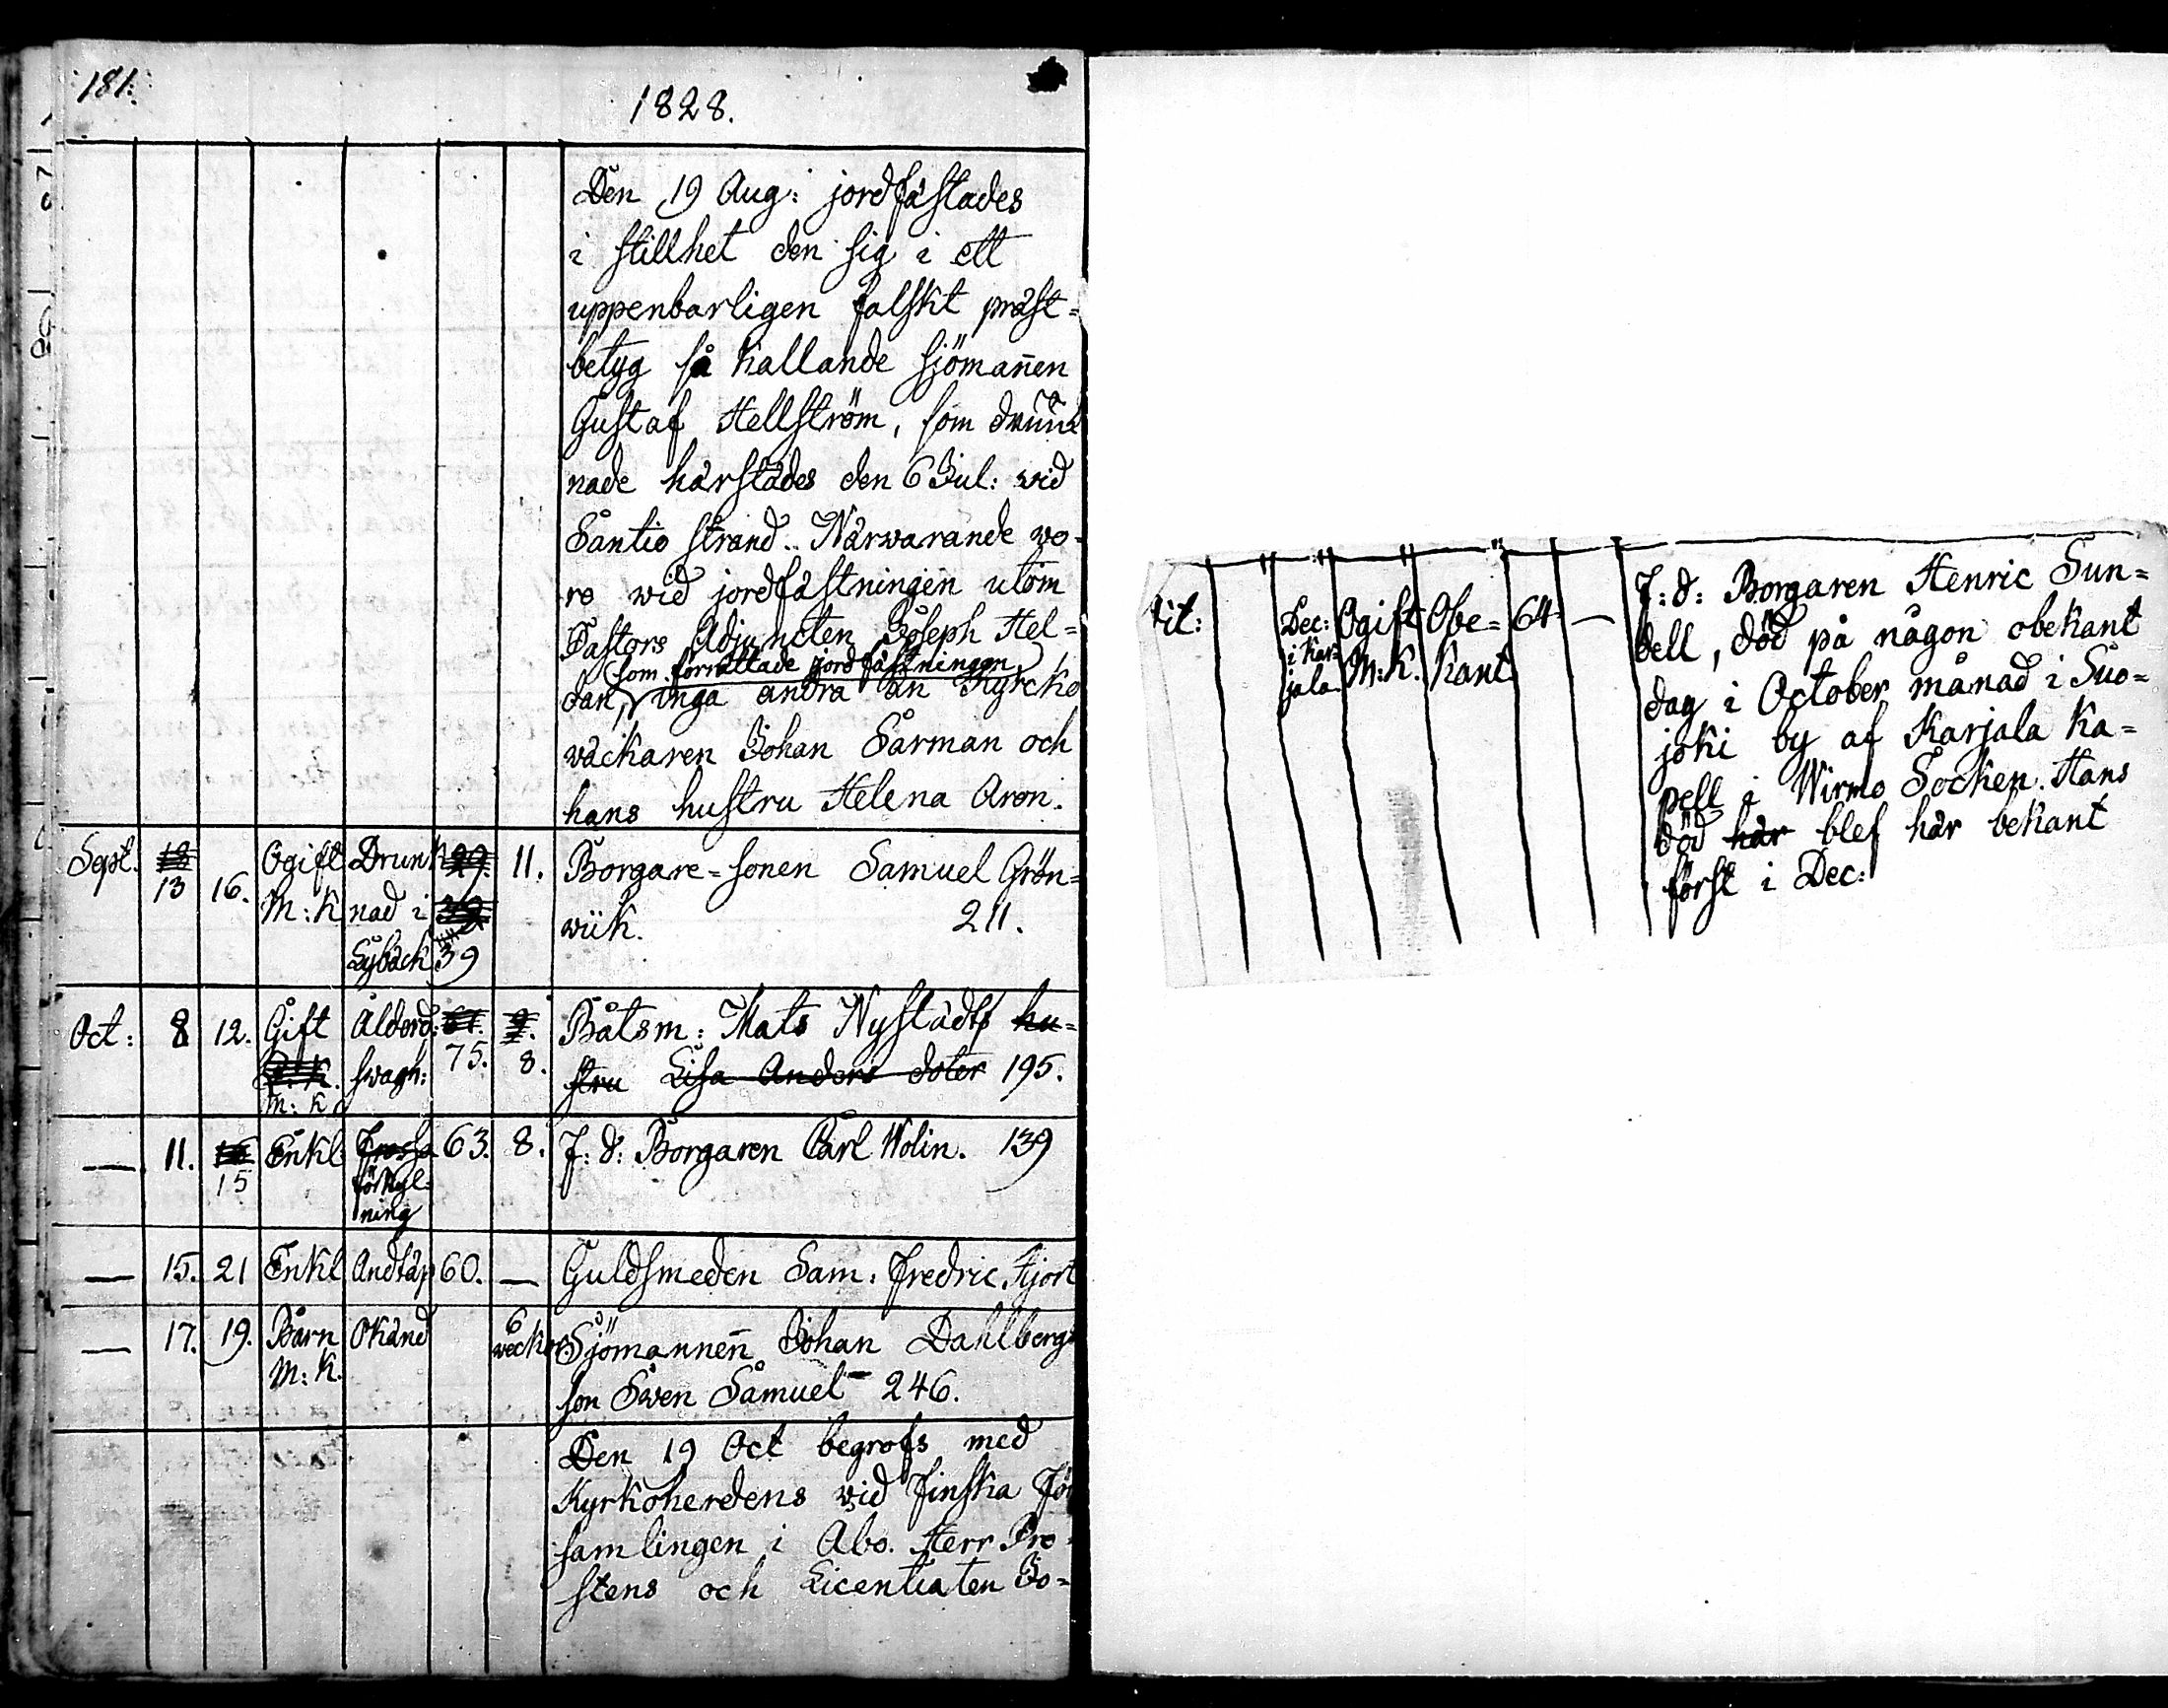 181.
1828.
Den 19 Aug: jordfästades
i stillhet den sig i ett
uppenbarligen falskt präst=
betyg så kallande sjömañen
Gustaf Hellström, som druñk
nade härstädes den 6 Jul: wid
Santio strand.. Närwarande wo-
ro wid jordfästningen utom
Pastors Adjuncten Joseph Hel=
(som förrättade jordfästningen)
dan, inga andra än Kyrcko
wäckaren Johan Sarman och
hans hustru Helena Aron.
Sept. 13 16. Ogift Drunk 29. 11. Borgare=sonen Samuel Grön=
M:K nad i 39 wiik. 211.
Lybäck 39
Oct: 8 12. Gift Ålderd: 67. 9. Båtsm: Mats Nystädt hu=
m:K swagh: 75. 8. stru Lisa Anders doter 195.
— 11. 15 Enkl. Frossa 63. 8. F:d: Borgaren Carl Wolin. 139
förkyl-
ning
— 15. 21 Enkl Andtäp 60. — Guldsmeden Sam: Fredric Hjort
— 17. 19. Barn Okänd 6 Sjömannen Johan Dahlbergs
M:K. weckor son Swen Samuel 246.
Den 19 Oct begrofs med
Kyrkoherdens wid Finska För
samlingen i Abo. Herr Pro-
stens och Licentiaten Jo=
tit: Dec: Ogift Obe= 64 — F:d: Borgaren Henric Sun=
i Kar- M:K. kant dell, död på någon obekant
jala. dag i October månad i Suo=
joki by af Karjala Ka=
pell i Wirmo Socken. Hans
död här blef här bekant
först i Dec: